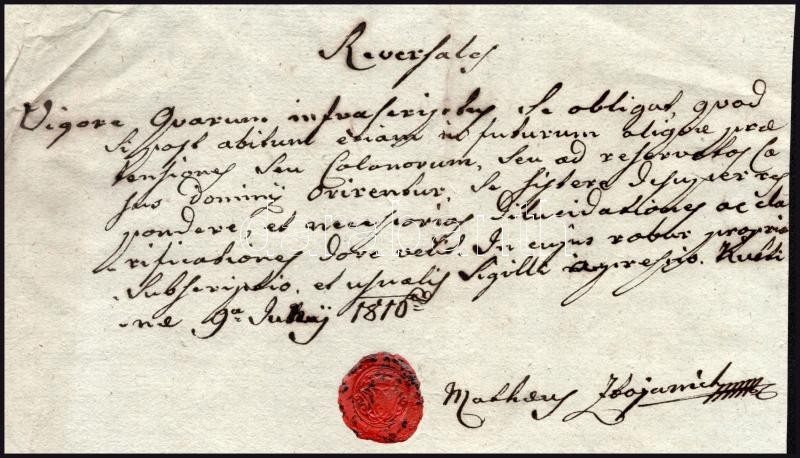 Reversales
Vigore Quarum infrascriptus se obligat, quod
Si post abitum etiam in futurum aliquae prae
tensiones seu Colonorum, seu ad reservatos Ca
sus dominij orirentur, se sistere desuper res
pondere, et necessarias dilucidationes ac cla
rificationes dare velit. In cujus robur propria
subscriptio, et usualis sigilli impressio.
ne 9a 1810
Matheus